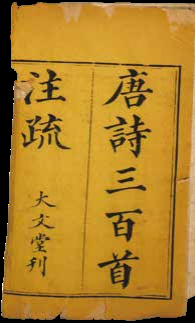 唐詩三百首
注疏
大文堂刋